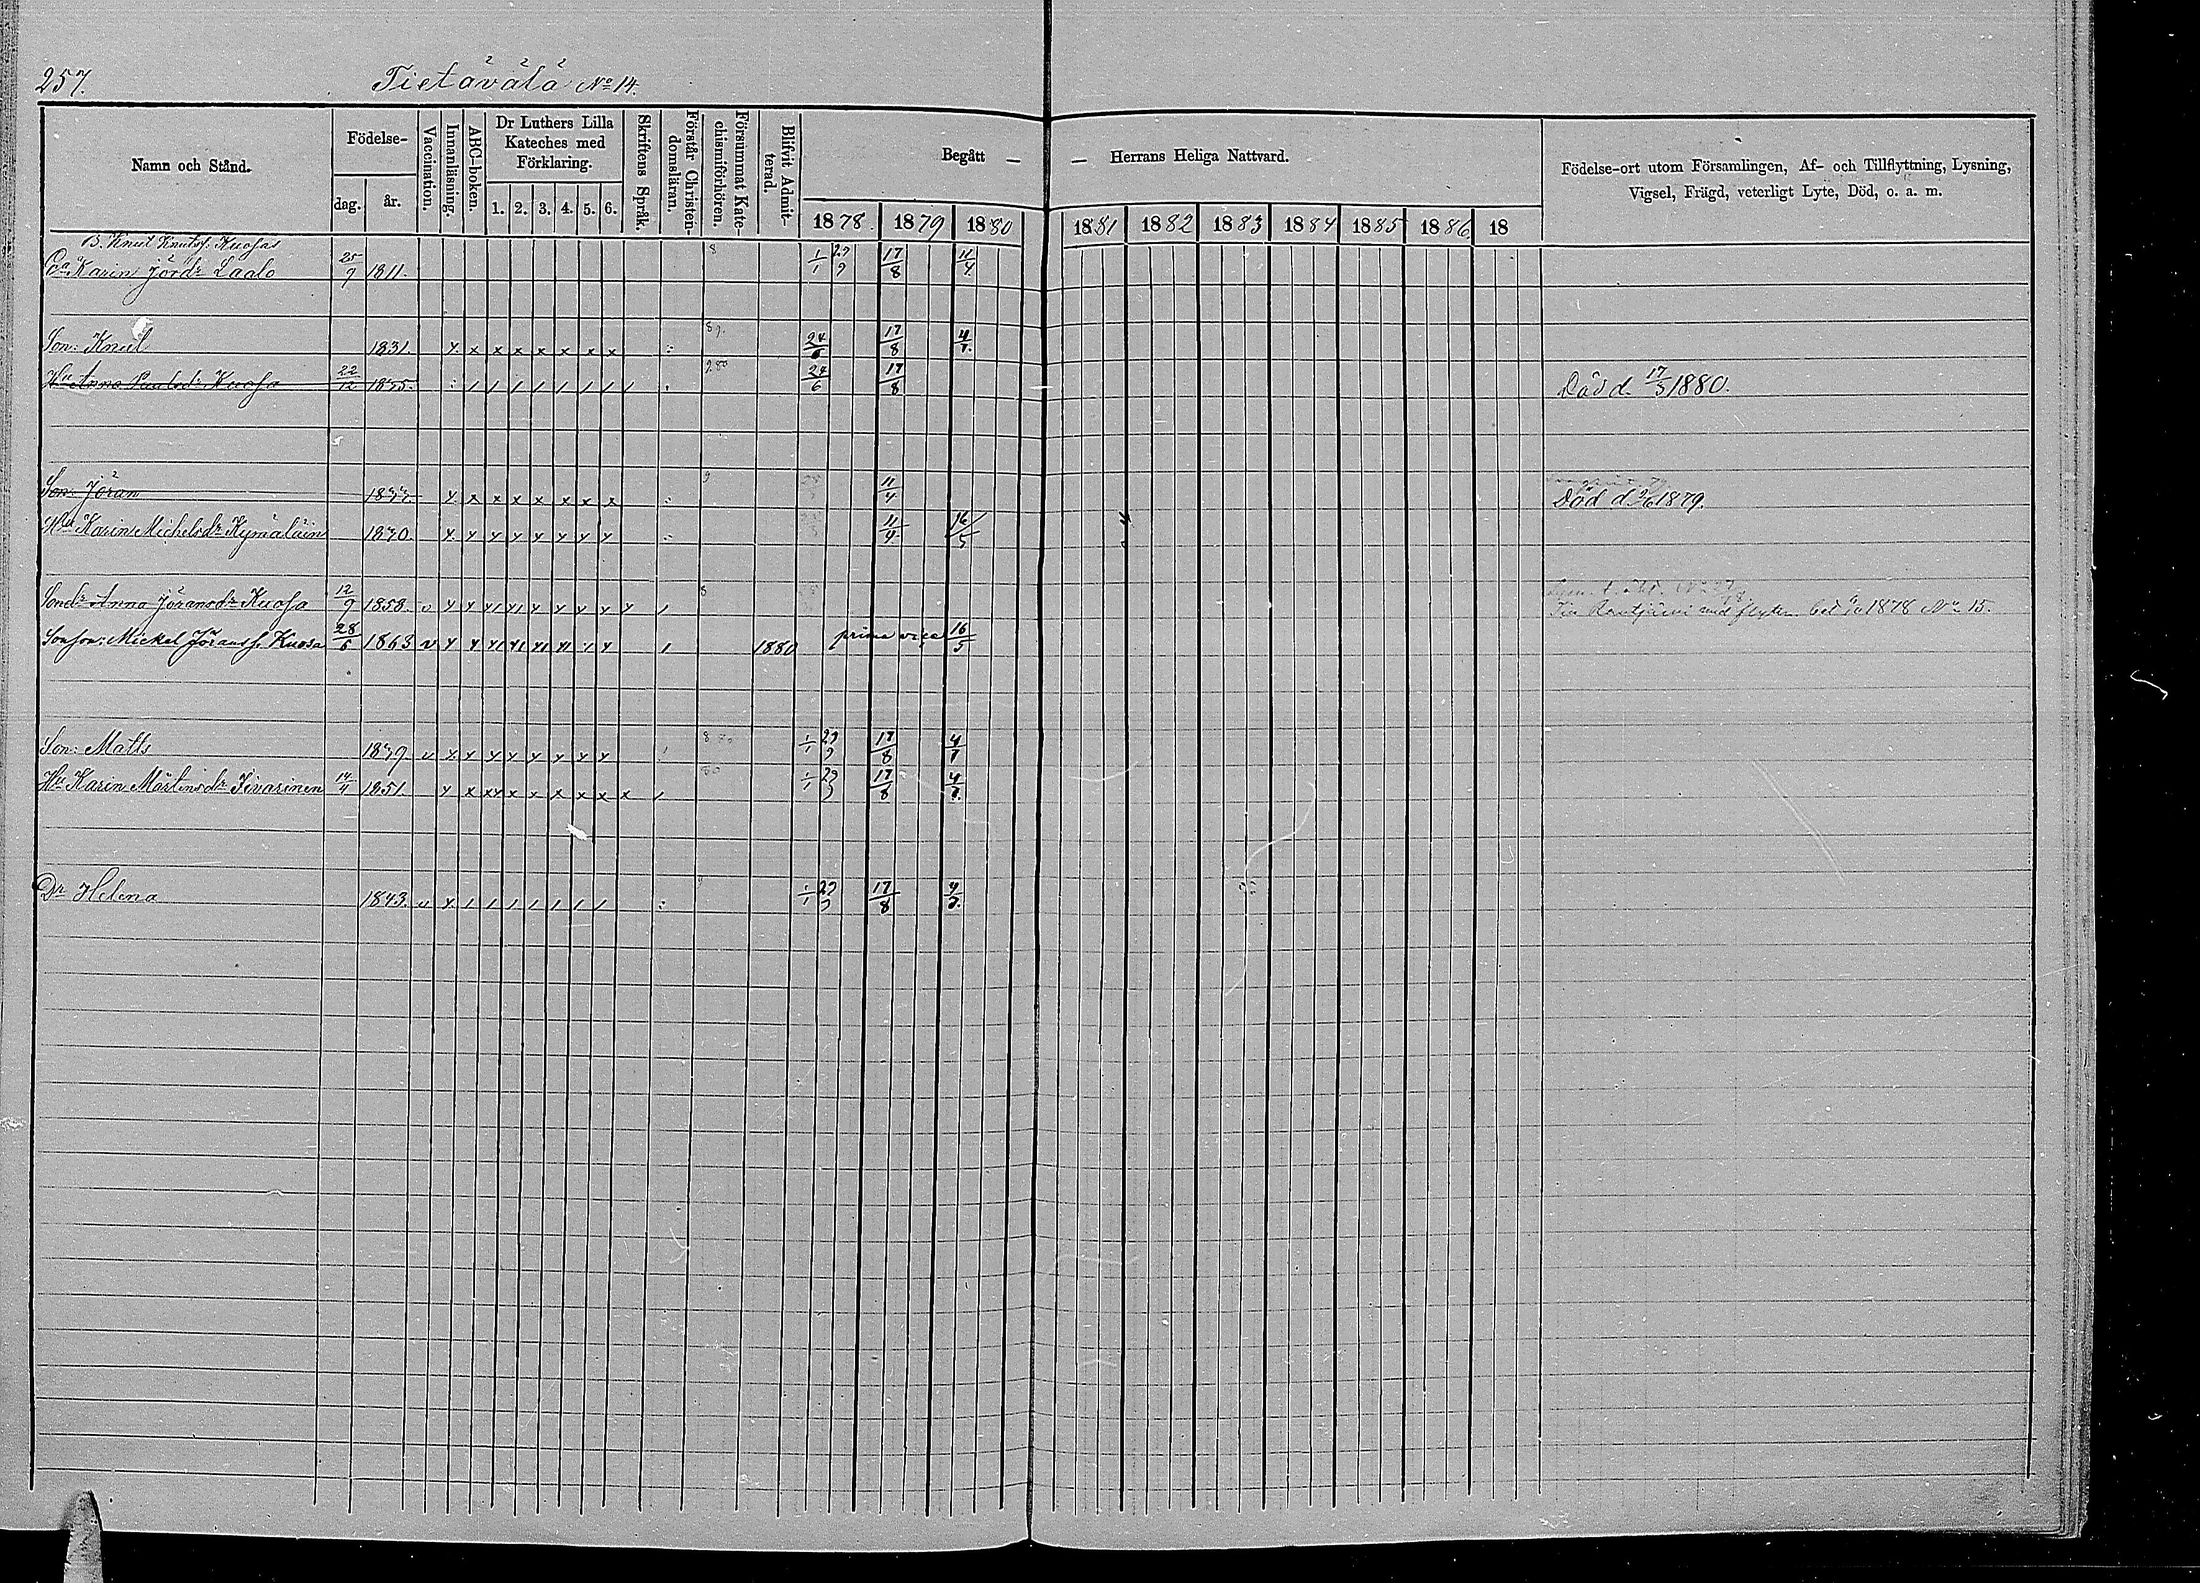 257.
Tietävälä No 14.
Namn och Stånd.
Födelse-
dag.
år.
Vaccination.
Innanläsning.
ABC-boken.
Dr Luthers Lilla
Kateches med
Förklaring.
1. 2. 3. 4. 5. 6.
Skriftens Språk.
Förstår Christen-
domsläran.
Försummat Kate-
chismiförhören.
Blifvit Admit-
terad.
Begått — — Herrans Heliga Nattvard.
1878. 1879 1880 1881 1882 1883 1884 1885 1886. 18
Födelse-ort utom Församlingen, Af- och Tillflyttning, Lysning,
Vigsel, Frägd, veterligt Lyte, Död, o. a. m.
B. Knut Knutsf. Kuosas
Karin Jördr Laalo 25/9 1811. 8 1/1 29/9 17/8 11/4
Son: Knut 1831. x x x x x x x x 17/8 4/7.
Hu Anna Paulsdr Kuosa 22/12 24/6 17/8 Död d. 17/3 1880.
Son: Jöran x x x x x x x x 9 11/4 Död d 1879.
Karin Michelsdr Kymäläin 11/4 16/5
Sondr Anna Jöransdr Kuosa 12/9 1858. 8 1878 No 15.
Sonson: Mickel Jöransf. Kuosa 28/6 1863 1880 prima vice 16/5
Son: Matts 1/1 29/9 17/8 4/7
Hu Karin Mårtensdr Iivarinen 14/4 1851. 1/1 29/9 17/8 4/7.
Dr Helena 1843. 1/1 29/9 17/8 4/7.